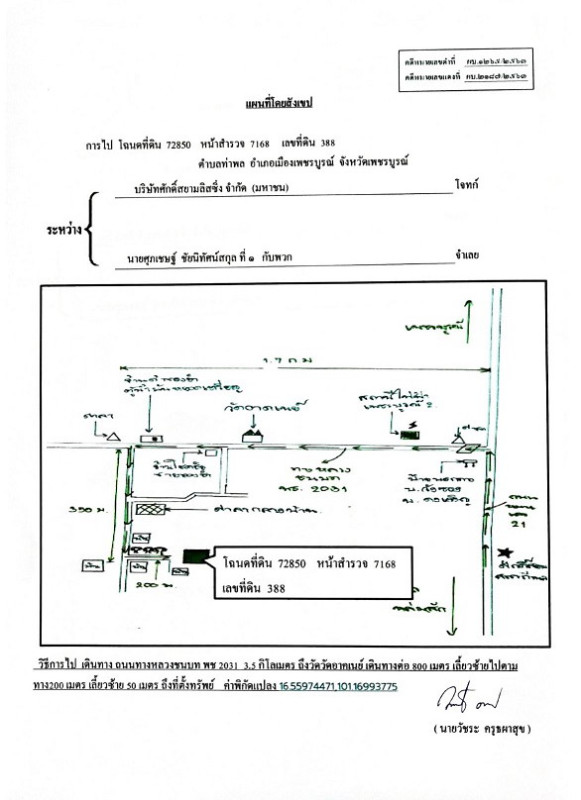 คดีหมายเลขดำที่ ผบ.๑๒๖๕/๒๕๖๓
คดีหมายเลขแดงที่ ผบ.๒๑๘๗/๒๕๖๓
แผนที่โดยสังเขป
การไป โฉนดที่ดิน 72850 หน้าสำรวจ 7168 เลขที่ดิน 388
ตำบลท่าพล อำเภอเมืองเพชรบูรณ์ จังหวัดเพชรบูรณ์
บริษัทศักดิ์สยามลิสซิ่ง จำกัด (มหาชน) โจทก์
ระหว่าง
นายศุภเชษฐ์ ชัยนิทัศน์สกุล ที่ ๑ กับพวก จำเลย
เพชรบูรณ์
1.7 ก.ม
ศาลา
สถานีไฟฟ้า
เพชรบูรณ์ 2
ทางหลวง
ชนบท
พช. 2031
21
350 ม.
ศาลากลางบ้าน
บ้าน
200 ม.
หล่มสัก
โฉนดที่ดิน 72850 หน้าสำรวจ 7168
เลขที่ดิน 388
วิธีการไป เดินทาง ถนนทางหลวงชนบท พช 2031 3.5 กิโลเมตร ถึงวัดวัดยาคเนย์ เดินทางต่อ 800 เมตร เลี้ยวซ้ายไปตาม
ทาง200 เมตร เลี้ยวซ้าย 50 เมตร ถึงที่ตั้งทรัพย์ ค่าพิกัดแปลง 16.55974471,101.16993775
( นายวัชระ ครุธผาสุข )